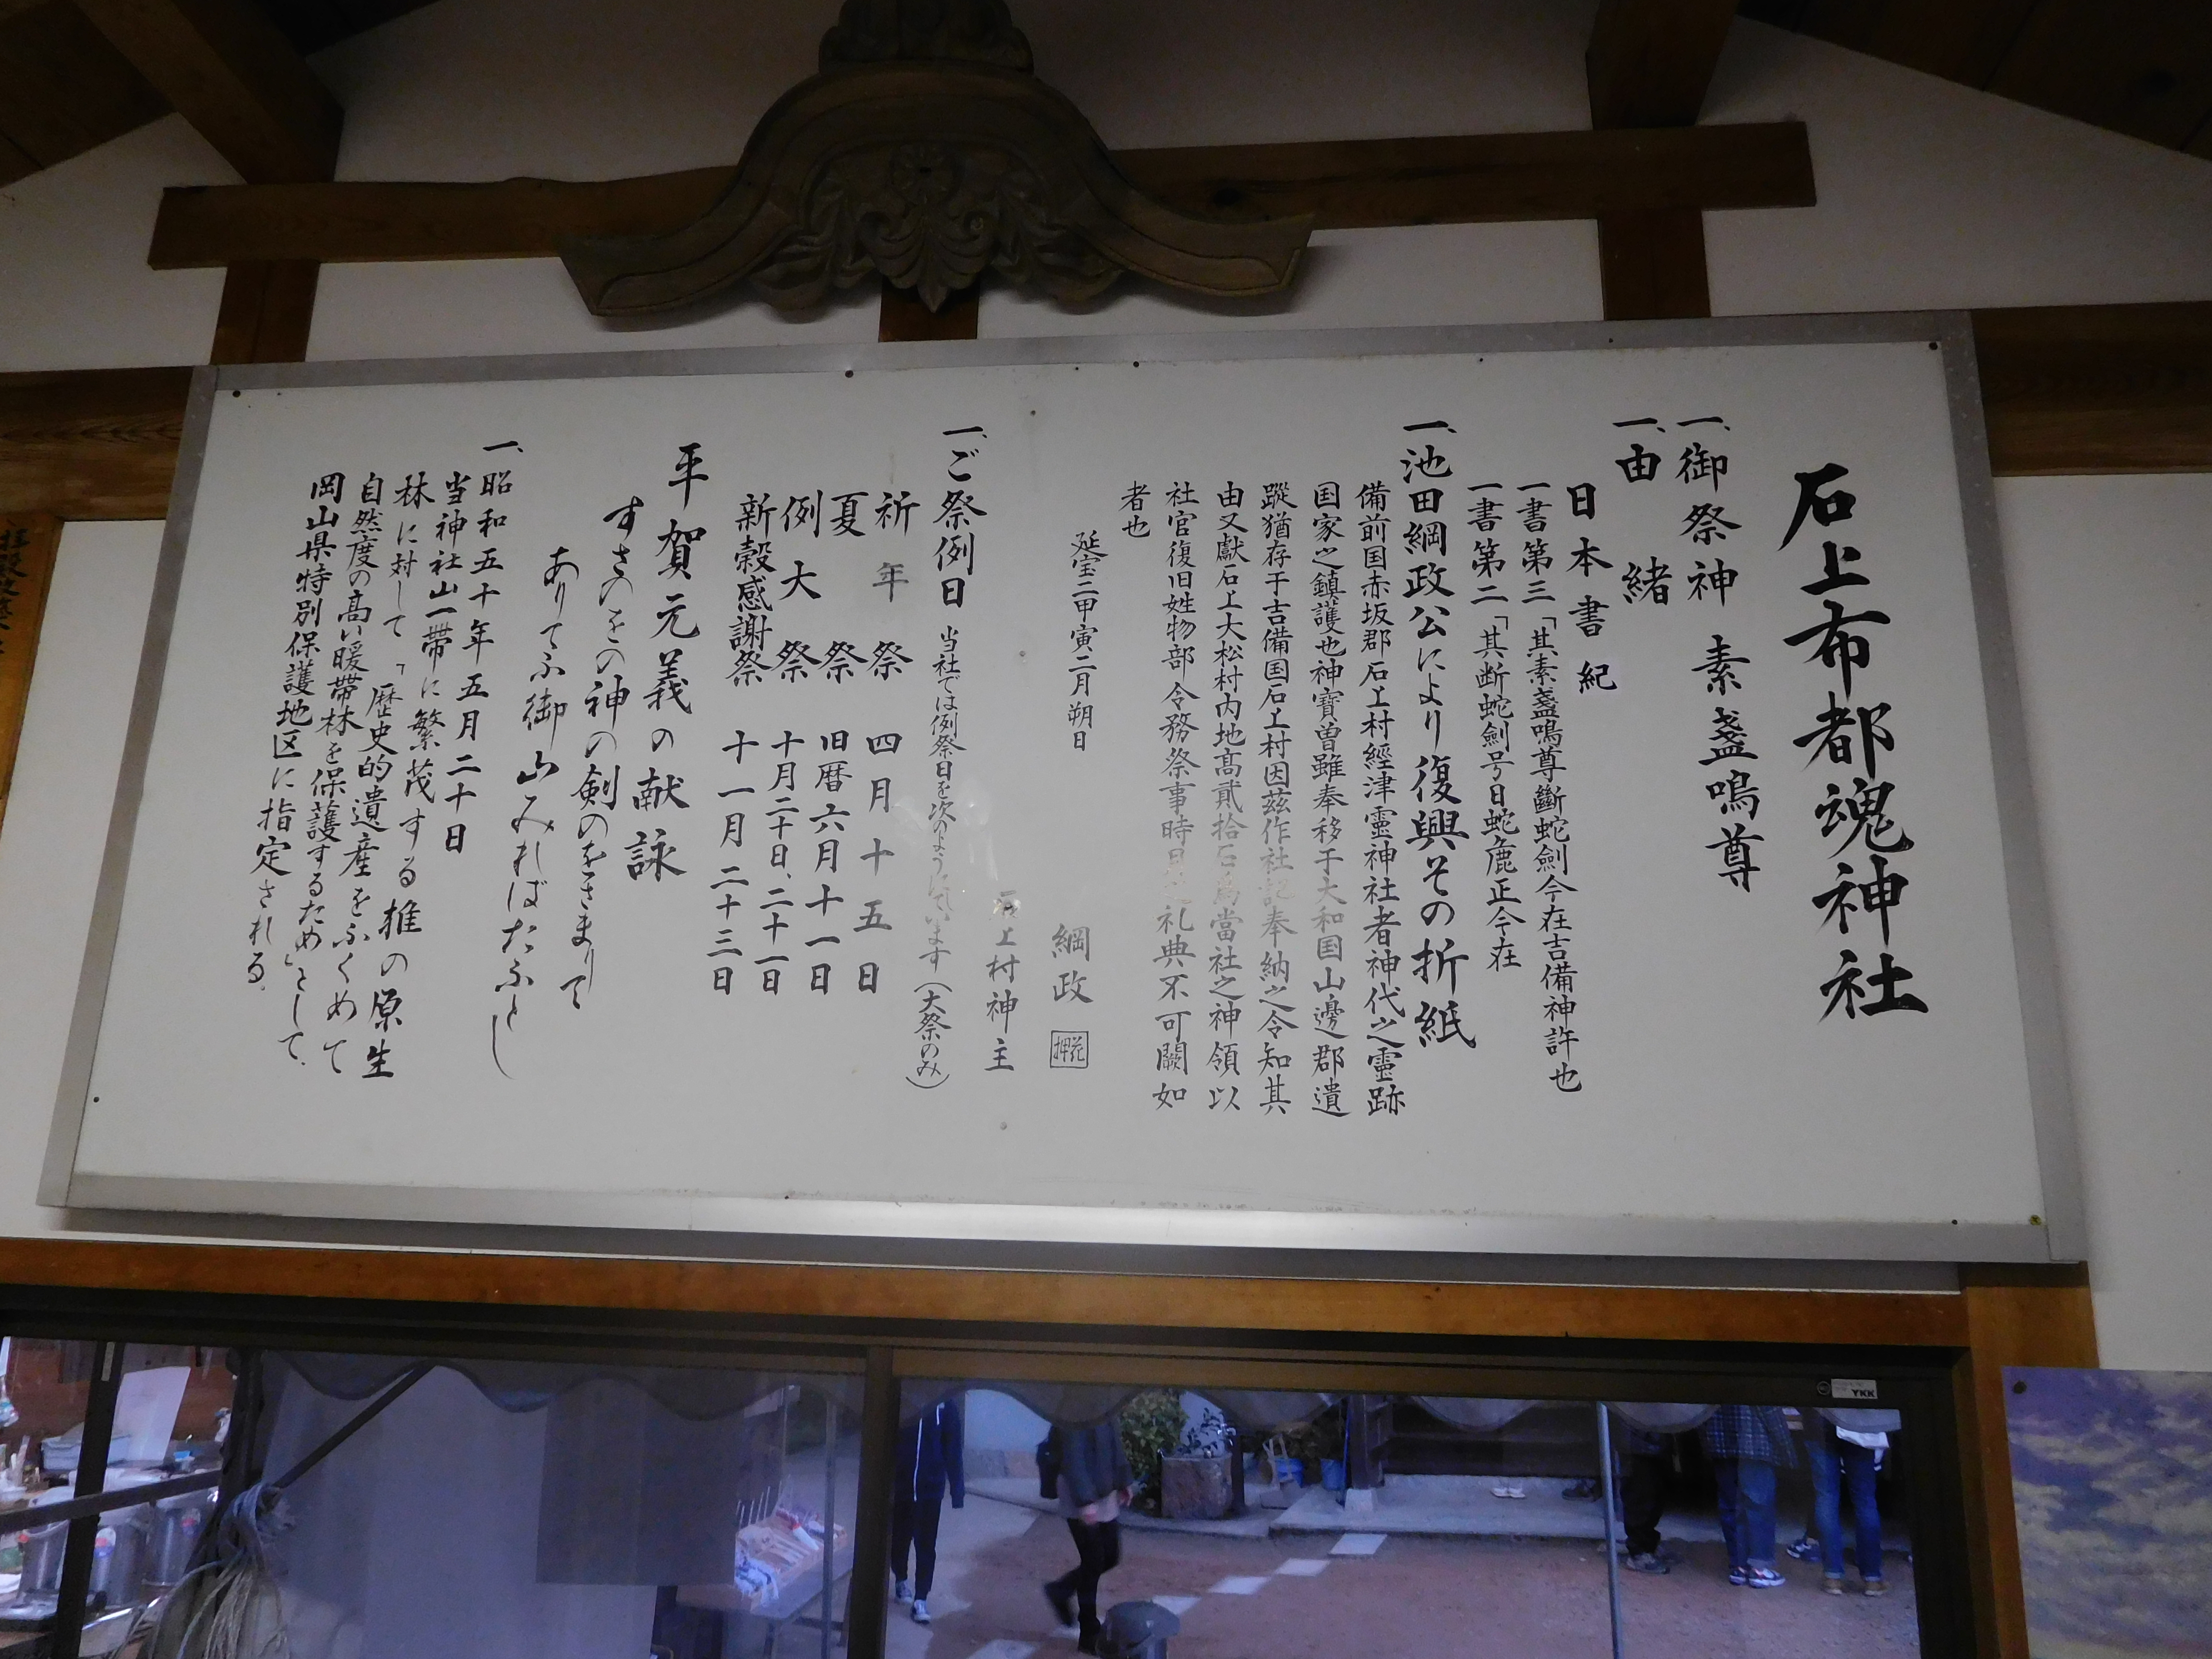 石上布都魂神社
一、御祭神 素盞嗚尊
一、由緒
日本書紀
一書第三「其素盞鳴尊斷蛇劍今在吉備神許也
一書第二「其断蛇劍号曰蛇麁正今在
一、池田綱政公により復興その折紙
備前国赤坂郡石上村經津霊神社者神代之霊跡
国家之鎮護也神寶曽雖奉移于大和国山邊郡遺
蹤猶存于吉備国石上村因茲作社記奉納之令知其
由又獻石上大松村内地高貳拾石為當社之神領以
社官復旧姓物部令務祭事時日之礼典不可闕如
者也
延宝二甲寅二月朔日
綱政 花押
石上村神主
一、ご祭例日 当社では例祭日を次のように います(大祭のみ)
祈年祭 四月十五日
夏祭 旧暦六月十一日
例大祭 十月二十日、二十一日
新穀感謝祭 十一月二十三日
平賀元義の献詠
すさのをの神の剣のをさまりて
ありてふ御山みればたふとし
一、昭和五十年五月二十日
当神社山一帯に繁茂する椎の原生
林に対して「歴史的遺産をふくめて
自然度の高い暖帯林を保護するため」として、
岡山県特別保護地区に指定される。
YKK